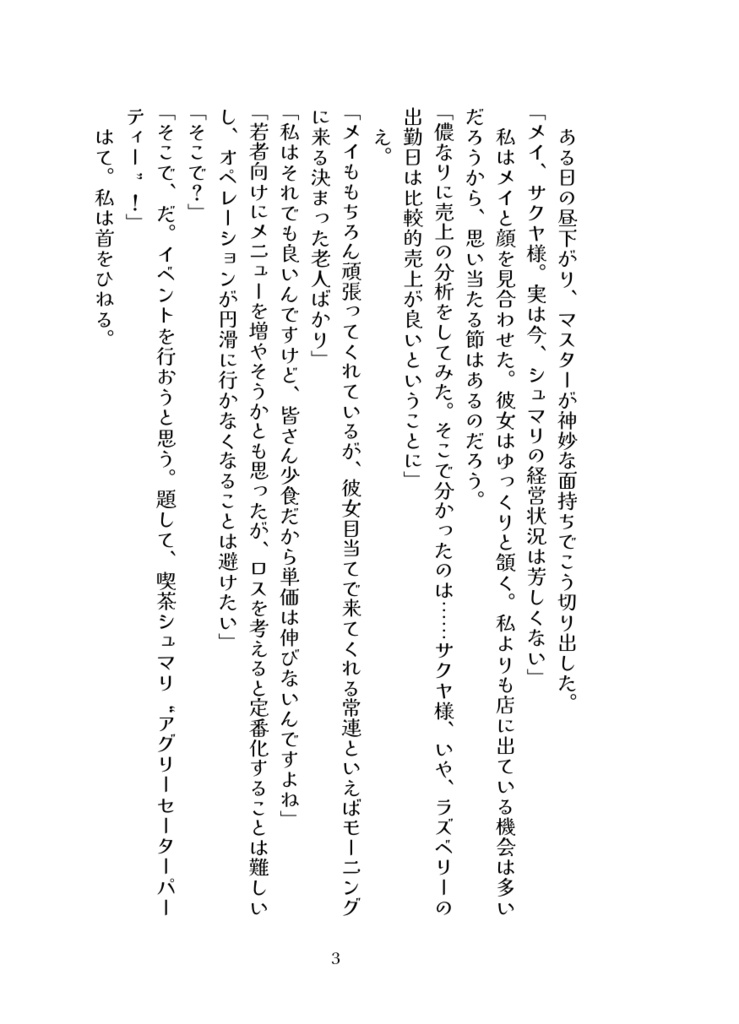 ある日の昼下がり、マスターが神妙な面持ちでこう切り出した。
「メイ、サクヤ様。実は今、シュマリの経営状況は芳しくない」
　私はメイと顔を見合わせた。彼女はゆっくりと頷く。私よりも店に出ている機会は多い
だろうから、思い当たる節はあるのだろう。
「儂なりに売上の分析をしてみた。そこで分かったのは……サクヤ様、いや、ラズベリーの
出勤日は比較的売上が良いということに」
　え。
「メイももちろん頑張ってくれているが、彼女目当てで来てくれる常連といえばモーニング
に来る決まった老人ばかり」
「私はそれでも良いんですけど、皆さん少食だから単価は伸びないんですよね」
「若者向けにメニューを増やそうかとも思ったが、ロスを考えると定番化することは難しい
し、オペレーションが円滑に行かなくなることは避けたい」
「そこで？」
「そこで、だ。イベントを行おうと思う。題して、喫茶シュマリ〝アグリーセーターパー
ティー〟！」
　はて。私は首をひねる。
3